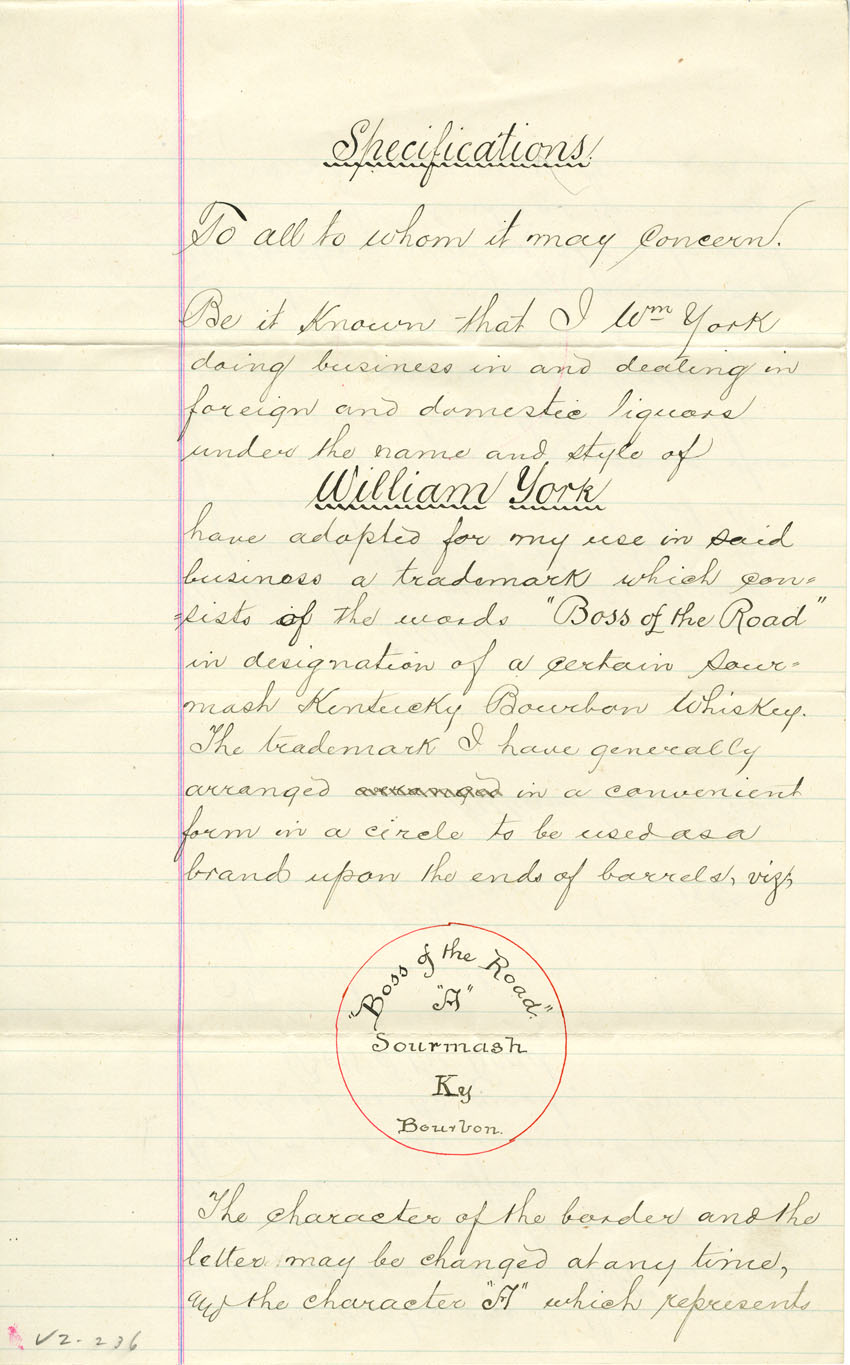 Specifications.
To all to whom it may concern.
Be it Known that I Wm York
doing business in and dealing in
foreign and domestic liquors
under the name and style of
William York
have adopted for my use in said
business a trademark which con=
=sists of the words "Boss of the Road"
in designation of a certain Sour=
mash Kentucky Bourbon Whiskey.
The trademark I have generally
arranged arranged in a convenient
form in a circle to be used as a
brand upon the ends of barrels, viz;
"Boss of the Road."
"A"
Sourmash
Ky
Bourbon.
The character of the border and the
letter may be changed at any time,
and the character "A" which represents
V2-236